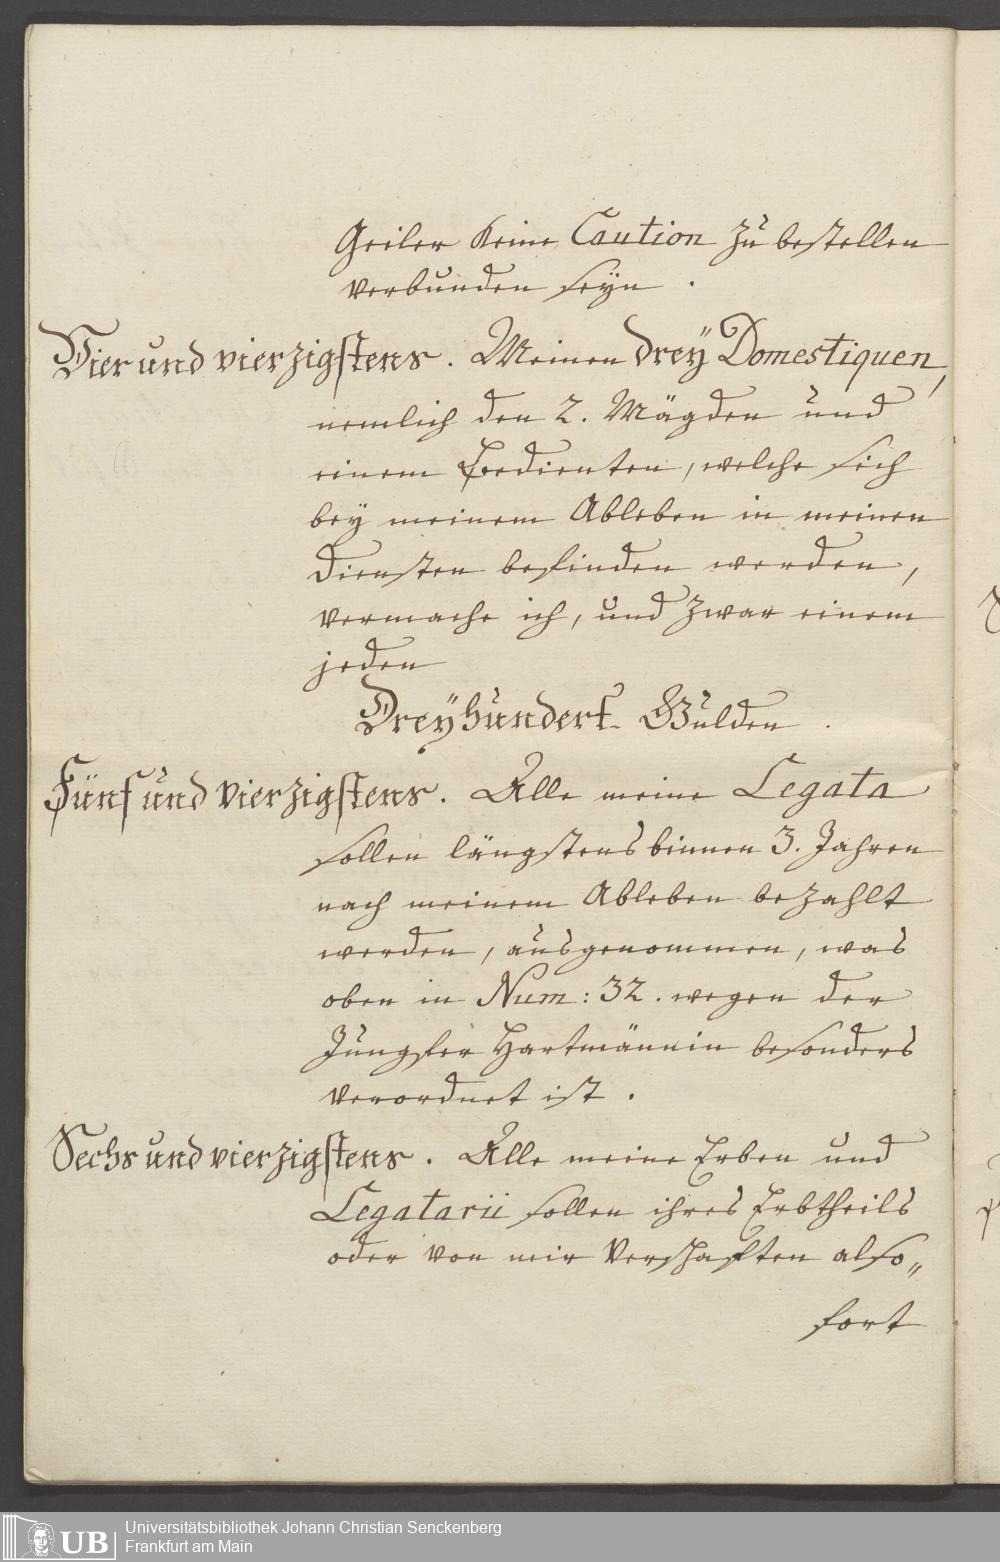 Geiler keine Caution zu bestellen
verbunden seÿn.
Vier und vierzigstens. Meinen dreÿ Domestiquen,
nemlich den 2. Mägden und
einem Bedienten, welche sich
beÿ meinem Ableben in meinen
Diensten befinden werden,
vermache ich, und zwar einem
jeden
Dreÿhundert Gulden.
Fünf und vierzigstens. Alle meine Legata
sollen längstens binnen 3. Jahren
nach meinem Ableben bezahlt
werden, ausgenommen, was
oben in Num: 32. wegen der
Jungfer Hartmännin besonders
verordnet ist.
Sechs und vierzigstens. Alle meine Erben und
Legatarii sollen ihres Erbtheils
oder von mir Verschafften also„
fort
UB
Universitätsbibliothek Johann Christian Senckenberg
Frankfurt am Main